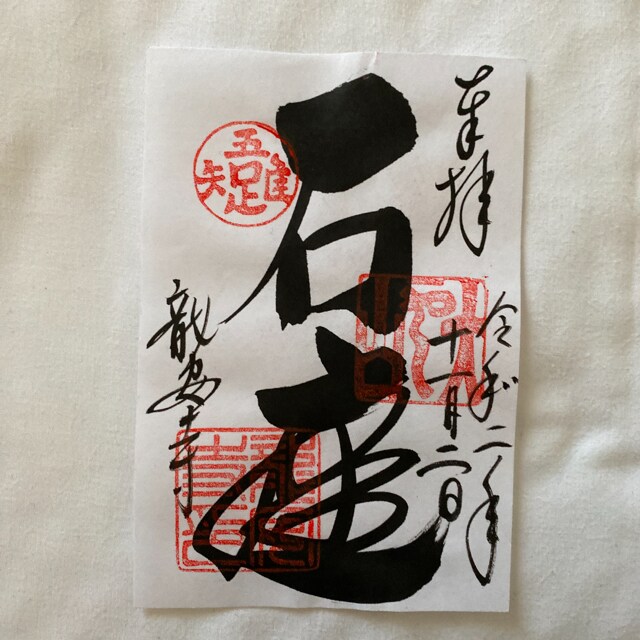 奉拝
令和二年
十一月二日
石庭
龍安寺
吾唯足知